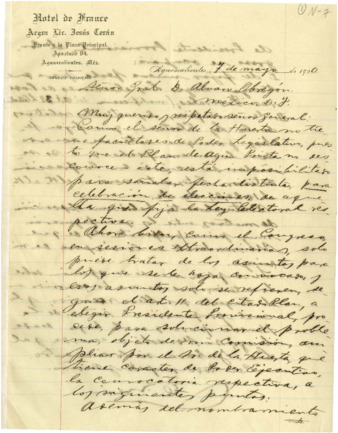 Hotel de France
Arcos Lic. Jesús Terán
Frente a la Plaza Principal.
Apartado 94.
Aguascalientes, Méx.
Aguascalientes, 7 de mayo de 1920
Señor Gral. D. Alvaro Obregón.
México, D. F.
Muy querido y respetado señor General:
Como el señor de la Huerta no tie-
ne facultades de Poder Legislativo, pues
el Plan de Agua Prieta no se
este, está imposibilitado
para señalar fecha distinta para
celebración de elecciones de aque-
lla que fija la Ley Electoral res-
pectiva.
Ahora bien, como el Congreso
en sesiones extraordinarias, solo
puede tratar de los asuntos para
los que se le haya convocado, y
esos asuntos solo se refieren, se-
gún el art. 11 del citado Plan, a
elegir Presidente Provisional, pro-
cede, para solucionar el proble-
ma, objeto de mi Comisión, am-
pliar por el Sr. de la Huerta, que
tiene carácter de Poder Ejecutivo,
la convocatoria respectiva, a
los siguientes puntos:
Además del nombramiento